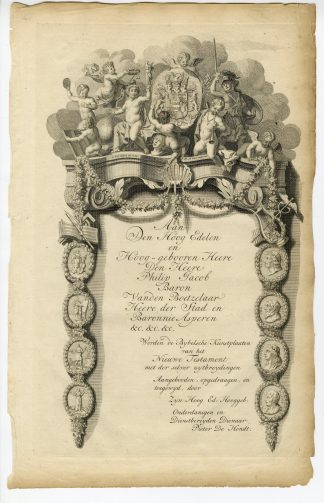 Aan
Den Hoog Edelen
en
Hoog-gebooren Heere
Den Heere
Philip Jacob
Baron
Vanden Boetzelaar
Heere der Stad en
Baronnie Asperen
&c. &c. &c.
Worden de Bybelsche Kunstplaaten
van het
Nieuwe Testament
met der zelver uytbreydingen
Aangebooden, opgedraagen en
toegewyd door
Zyn Hoog Ed. Hooggeb.
Onderdanigen en
Dienstbereyden Dienaar
Pieter De Hondt.